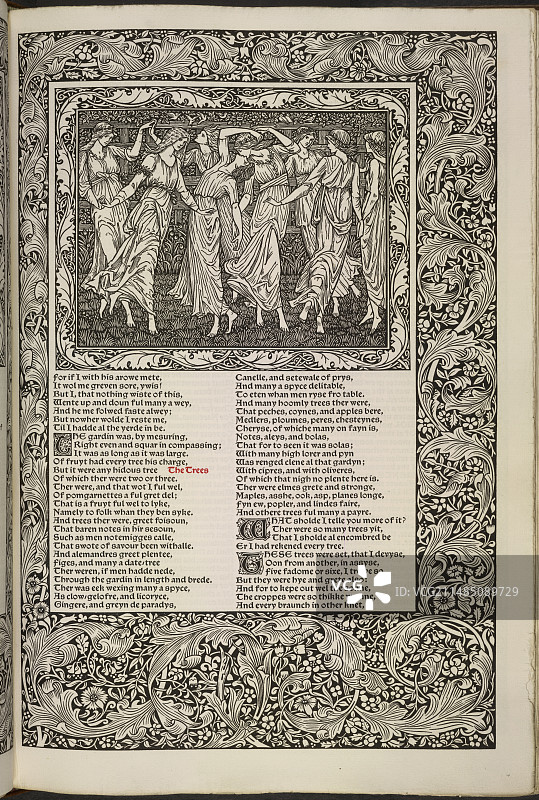 For if I with his arowe mete,
It wol me greven sore, ywis!
But I, that nothing wiste of this,
Wente up and doun ful many a wey,
And he me folwed faste alwey;
But nowher wolde I reste me,
Til I hadde al the yerde in be.
THE gardin was, by mesuring,
Right even and squar in compassing;
It was as long as it was large.
Of fruyt had every tree his charge,
But it were any hidous tree The Trees
Of which ther were two or three.
Ther were, and that wot I ful wel,
Of pomgarnettes a ful gret del;
That is a fruyt ful wel to lyke,
Namely to folk whan they ben syke.
And trees ther were, greet foisoun,
That baren notes in hir sesoun,
Such as men notemigges calle,
That swote of savour been withalle.
And alemandres greet plentee,
Figes, and many a date-tree
Ther weren, if men hadde nede,
Through the gardin in length and brede.
Ther was eek wexing many a spyce,
As clow-gelofre, and licoryce,
Gingere, and greyn de paradys,
Canelle, and setewale of prys,
And many a spyce delitable,
To eten whan men ryse fro table.
And many hoomly trees ther were,
That peches, coynes, and apples bere,
Medlers, ploumes, peres, chesteynes,
Cheryse, of whiche many on fayn is,
Notes, aleys, and bolas,
That for to seen it was solas;
With many high lorer and pyn
Was renged clene al that gardyn;
With cipres, and with oliveres,
Of which that nigh no plente here is.
Ther were elmes grete and stronge,
Maples, asshe, ook, asp, planes longe,
Fyn ew, popler, and lindes faire,
And othere trees ful many a payre.
WHAT sholde I telle you more of it?
Ther were so many trees yit,
That I sholde al encombred be
Er I had rekened every tree.
THESE trees were set, that I devyse,
Oon from another, in assyse,
Five fadome or sixe, I trowe so
But they were hye and great
And for to kepe out wel the sonne,
The croppes were so thikke
And every braunch in other knet,
VCG
VCG211485089729